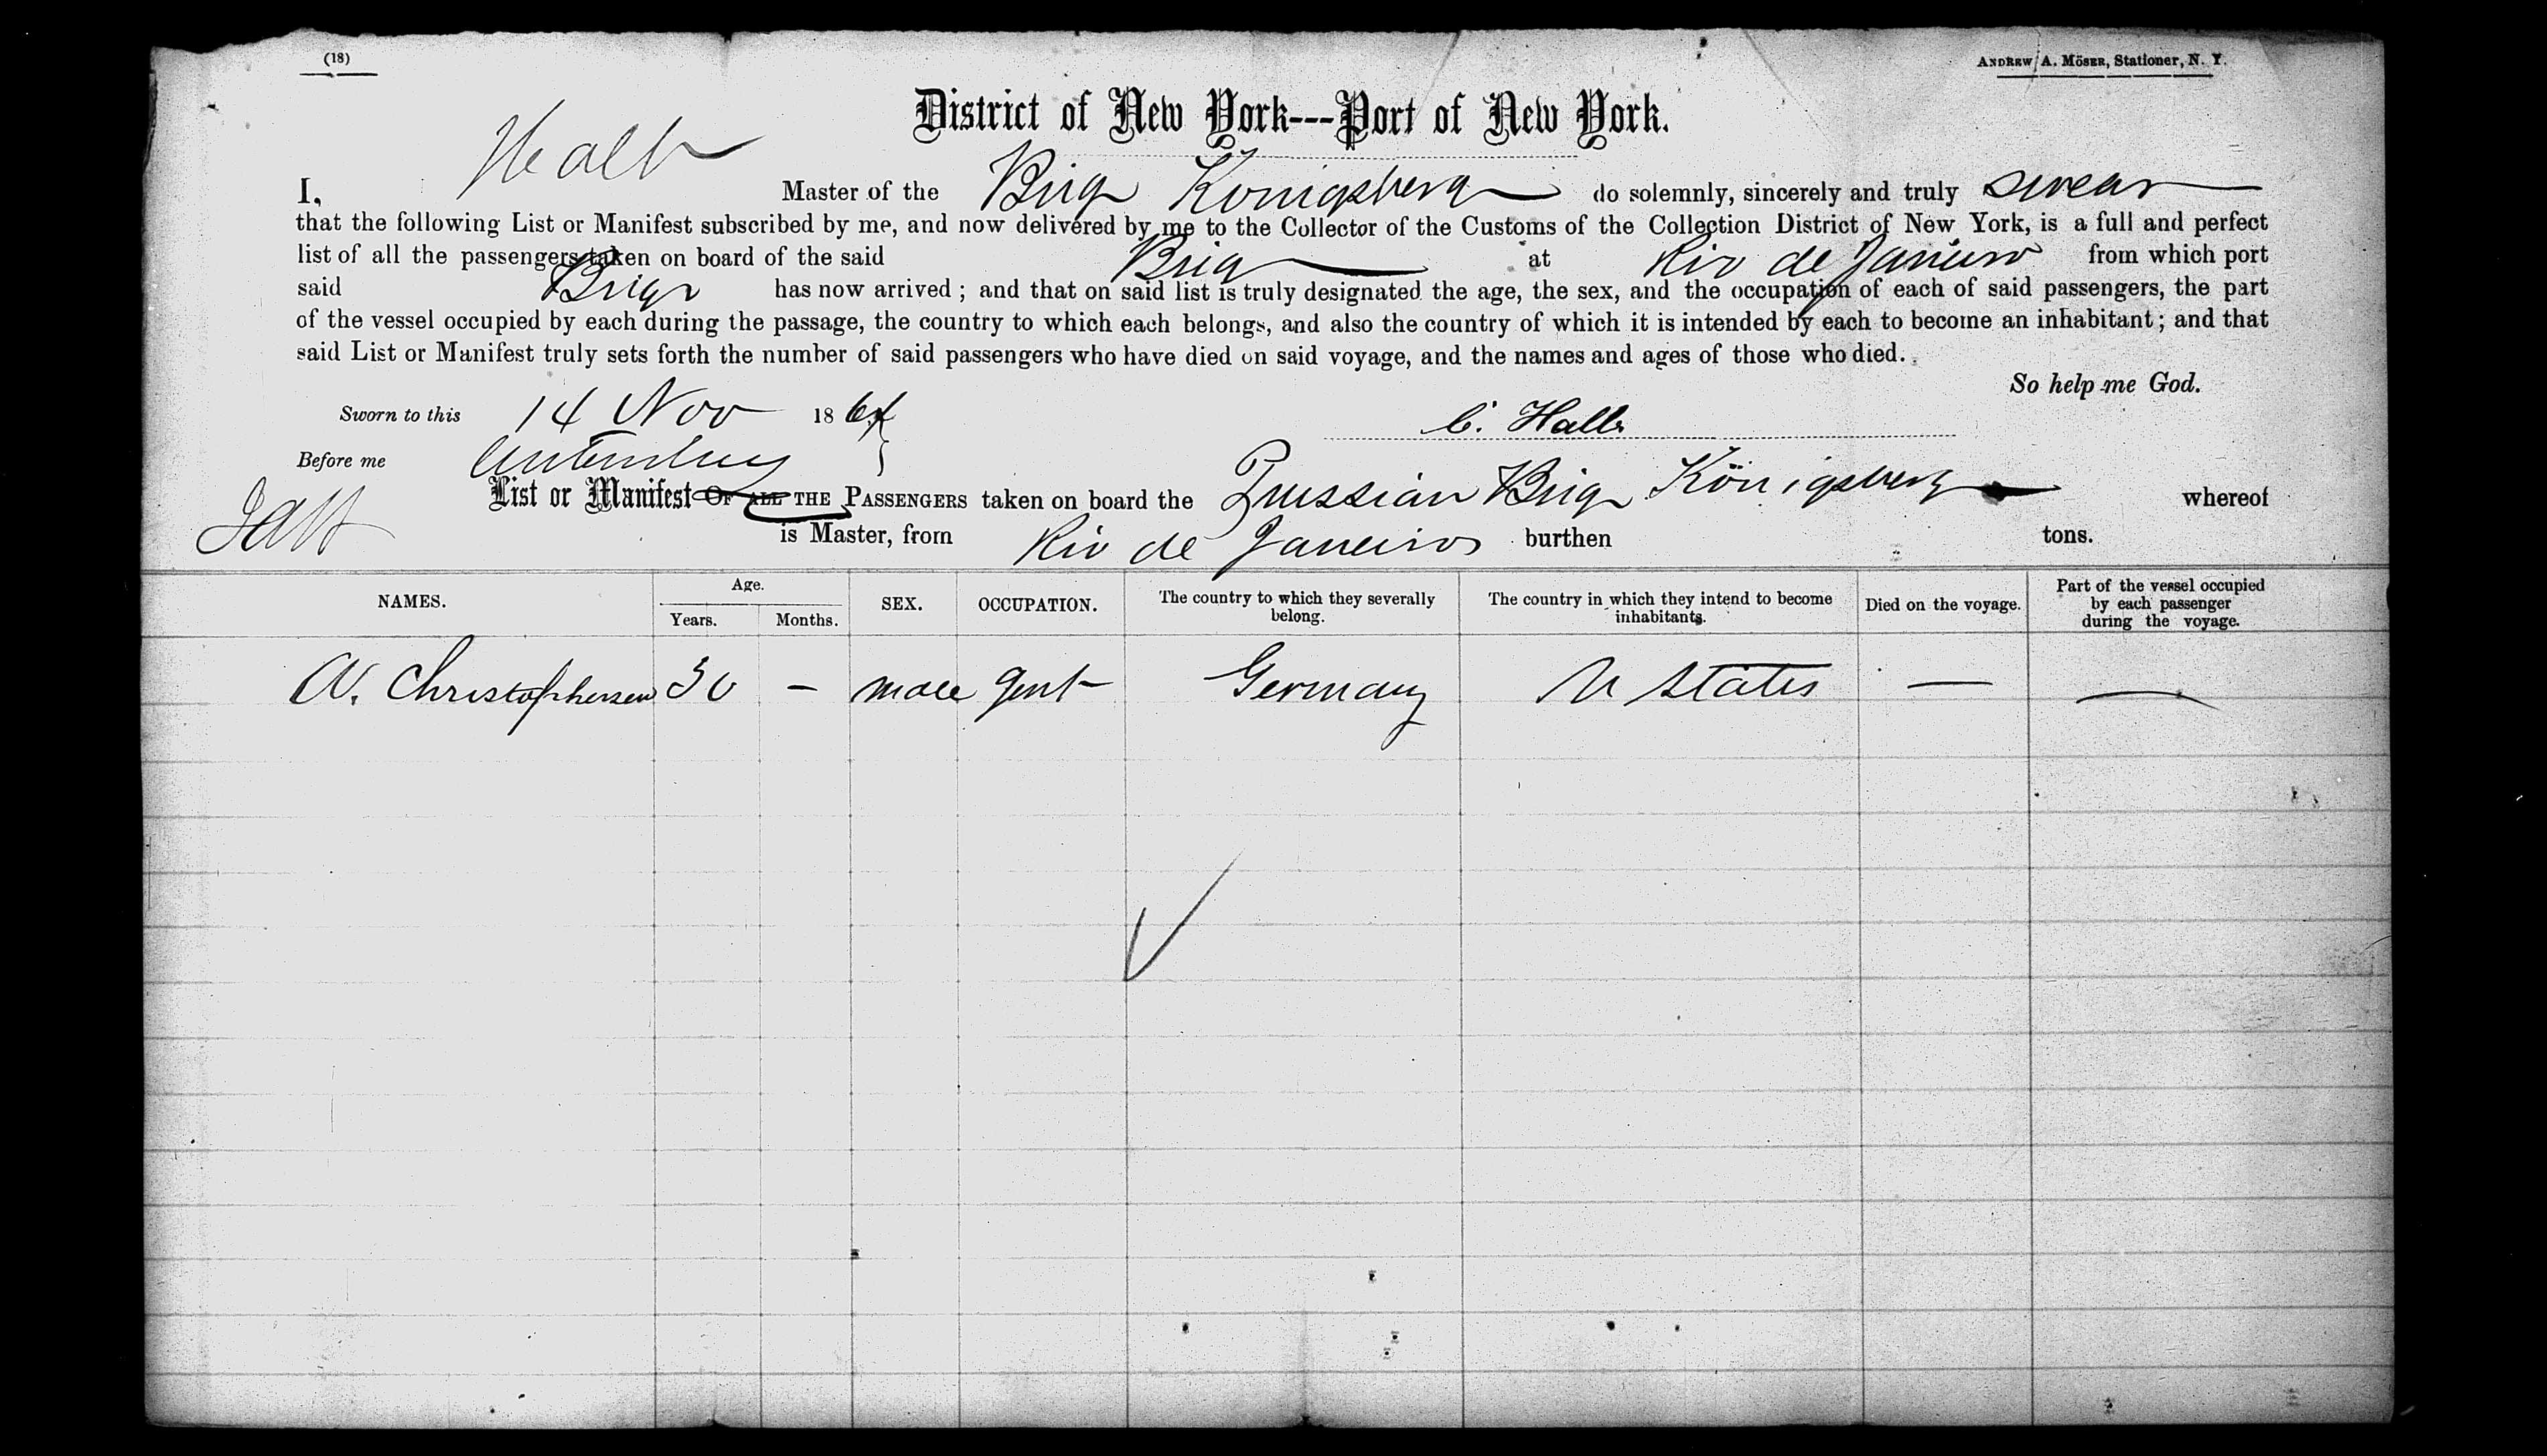 (18)
ANDREW A. MÖSER, Stationer, N. Y.
District of New York---Port of New York.
I, Master of the Brig Konigsberg do solemnly, sincerely and truly swear
that the following List or Manifest subscribed by me, and now delivered by me to the Collector of the Customs of the Collection District of New York, is a full and perfect
list of all the passengers taken on board of the said Brig at Rio de Janeiro from which port
said Brig has now arrived; and that on said list is truly designated the age, the sex, and the occupation of each of said passengers, the part
of the vessel occupied by each during the passage, the country to which each belongs, and also the country of which it is intended by each to become an inhabitant; and that
said List or Manifest truly sets forth the number of said passengers who have died on said voyage, and the names and ages of those who died.
So help me God.
Sworn to this 14 Nov 1864
C. Halb
Before me
List or Manifest OF ALL THE PASSENGERS taken on board the Prussian Brig Königsberg whereof
is Master, from Rio de Janeiro burthen tons.
NAMES. Age. Years. Months. SEX. OCCUPATION. The country to which they severally belong. The country in which they intend to become inhabitants. Died on the voyage. Part of the vessel occupied by each passenger during the voyage.
Christophersen 30 – male gent Germany U States — —